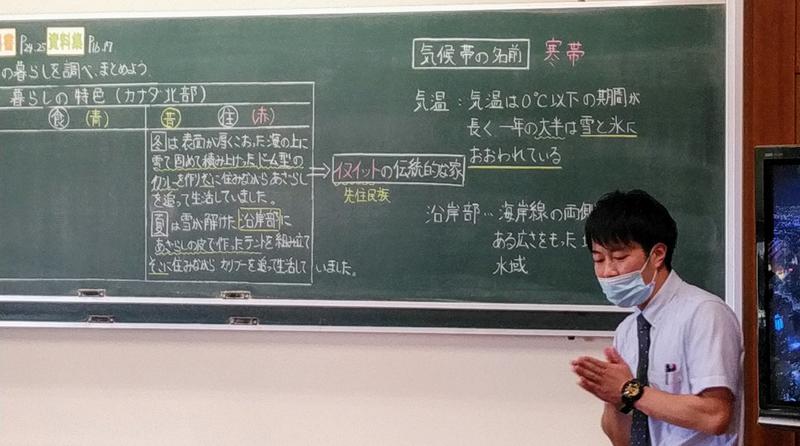 書 P24.25 資料集 P16.17
の暮らしを調べ、まとめよう
暮らしの特色(カナダ北部)
食 (青) 昔 住 (赤)
冬は表面が厚くこおった海の上に
雪で固めて積み上げたドーム型の
イグルーを作りそこに住みながらあざらし
を追って生活していました。
夏は雪が解けた沿岸部に
あざらしの皮で作ったテントを組み立て
そこに住みながらカリブーを追って生活していました。
⇒ イヌイットの伝統的な家
先住民族
気候帯の名前 寒帯
気温:気温は0℃以下の期間が
長く一年の太半は雪と氷に
おおわれている
沿岸部…海岸線の両側
ある広さをもった
水域